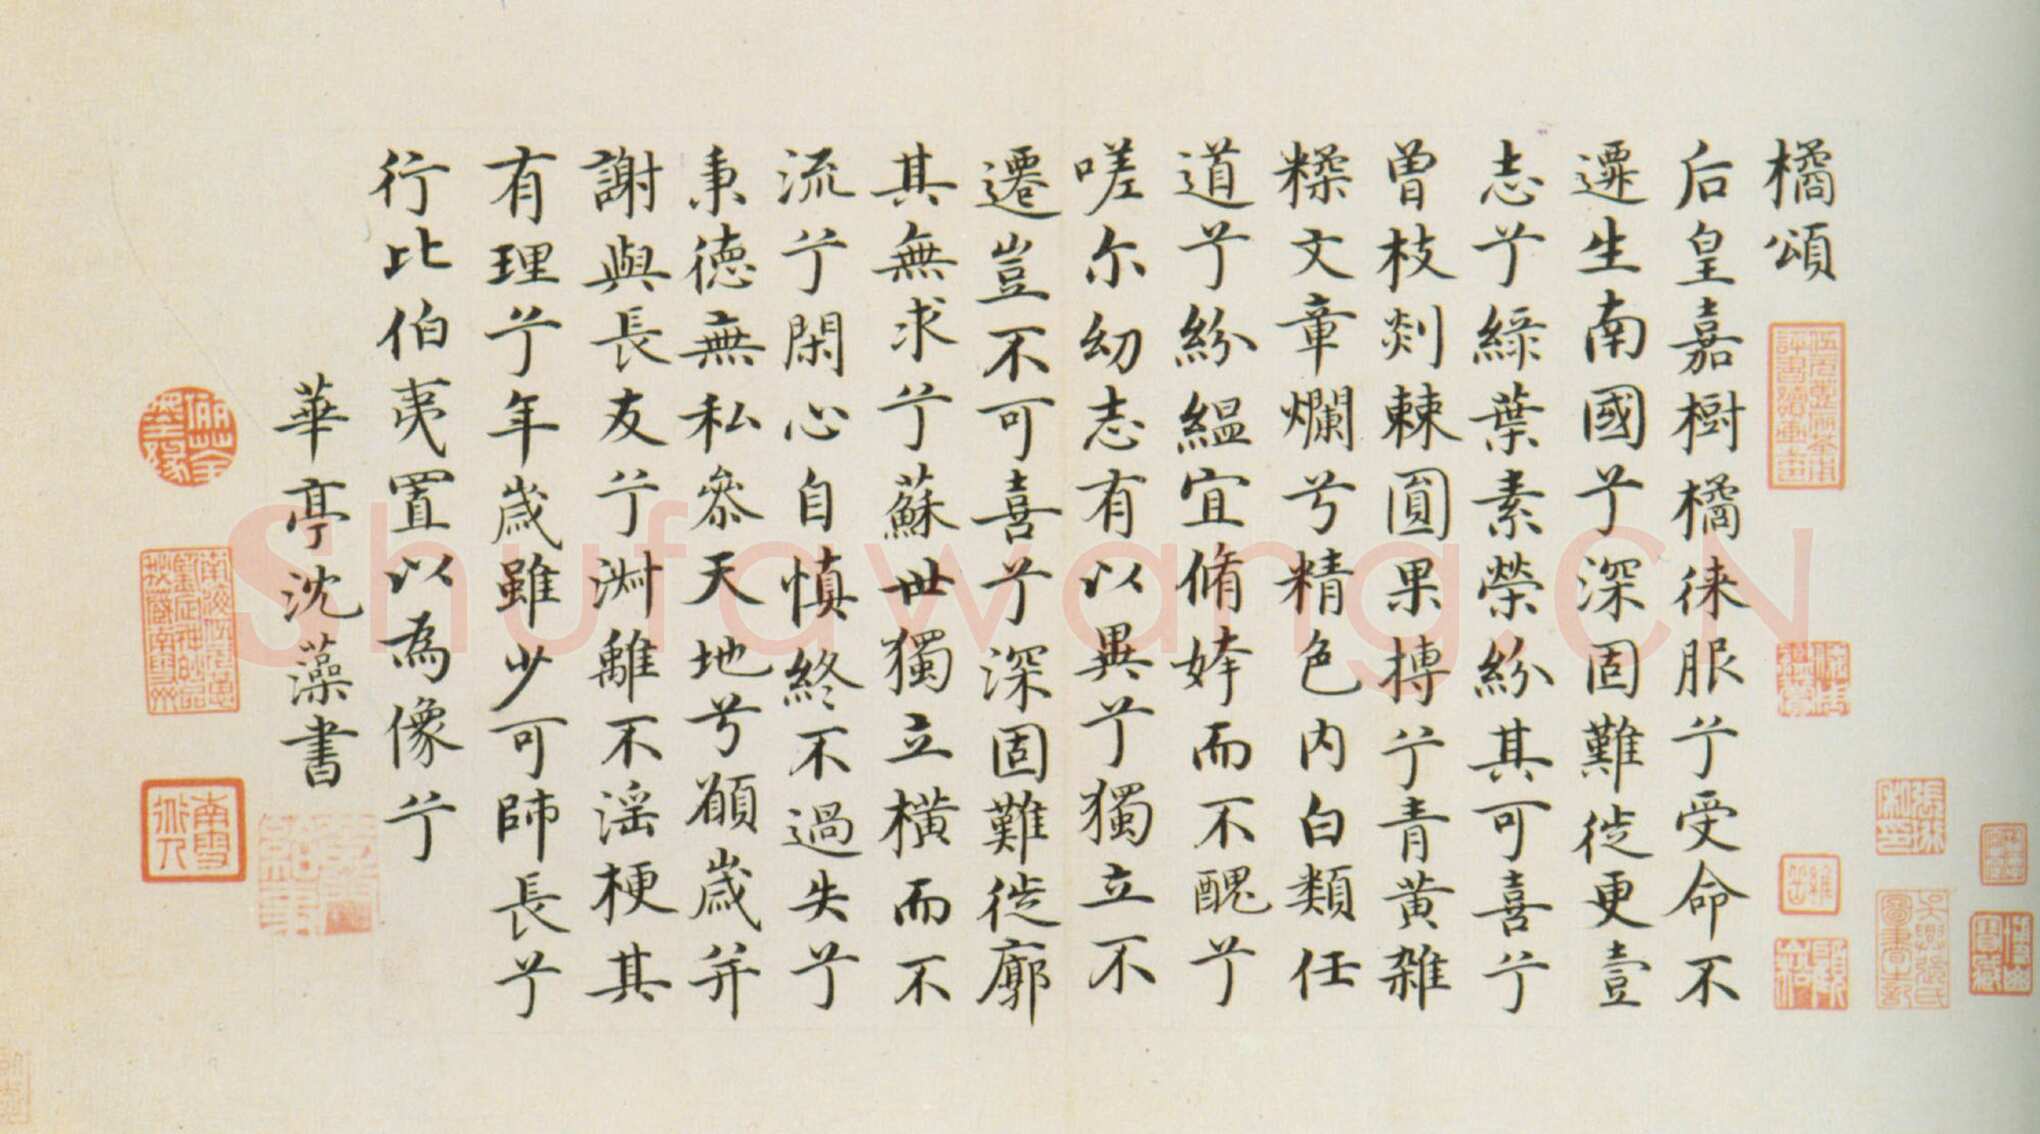 橘頌
后皇嘉樹橘徠服兮受命不
遷生南國兮深固難徙更壹
志兮綠葉素榮紛其可喜兮
曾枝剡棘圓果摶兮青黃雜
糅文章爛兮精色內白類任
道兮紛縕宜脩姱而不醜兮
嗟尔幼志有以異兮獨立不
遷豈不可喜兮深固難徙廓
其無求兮蘇世獨立橫而不
流兮閑心自慎終不過失兮
秉德無私參天地兮願歲并
謝與長友兮淵離不淫梗其
有理兮年歲雖少可師長兮
行比伯夷置以為像兮
華亭沈藻書
南雪
Shufawang.CN